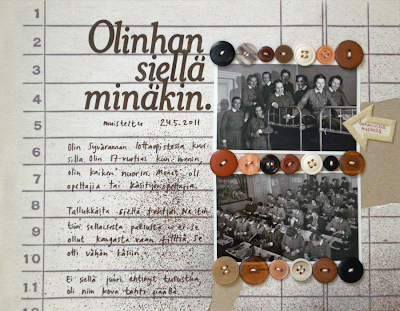 1
2
3
4
5
6
7
8
9
10
11
Olinhan
siellä
minäkin.
muisteltu 24.5.2011
Olin Syvärannan lottaopistossa
silla. Olin 17-vuotias kun menin,
olin kaiken nuorin. Monet oli
opettajia tai käsityönopettajia.
Tallukkaita siellä tehtiin. Ne teh-
tiin sellaisesta paksusta – ei se
ollut kangasta vaan filttiä. Se
otti vähän käsiin.
Ei siellä juuri ehtinyt tutustua,
oli niin kova tahti päällä.